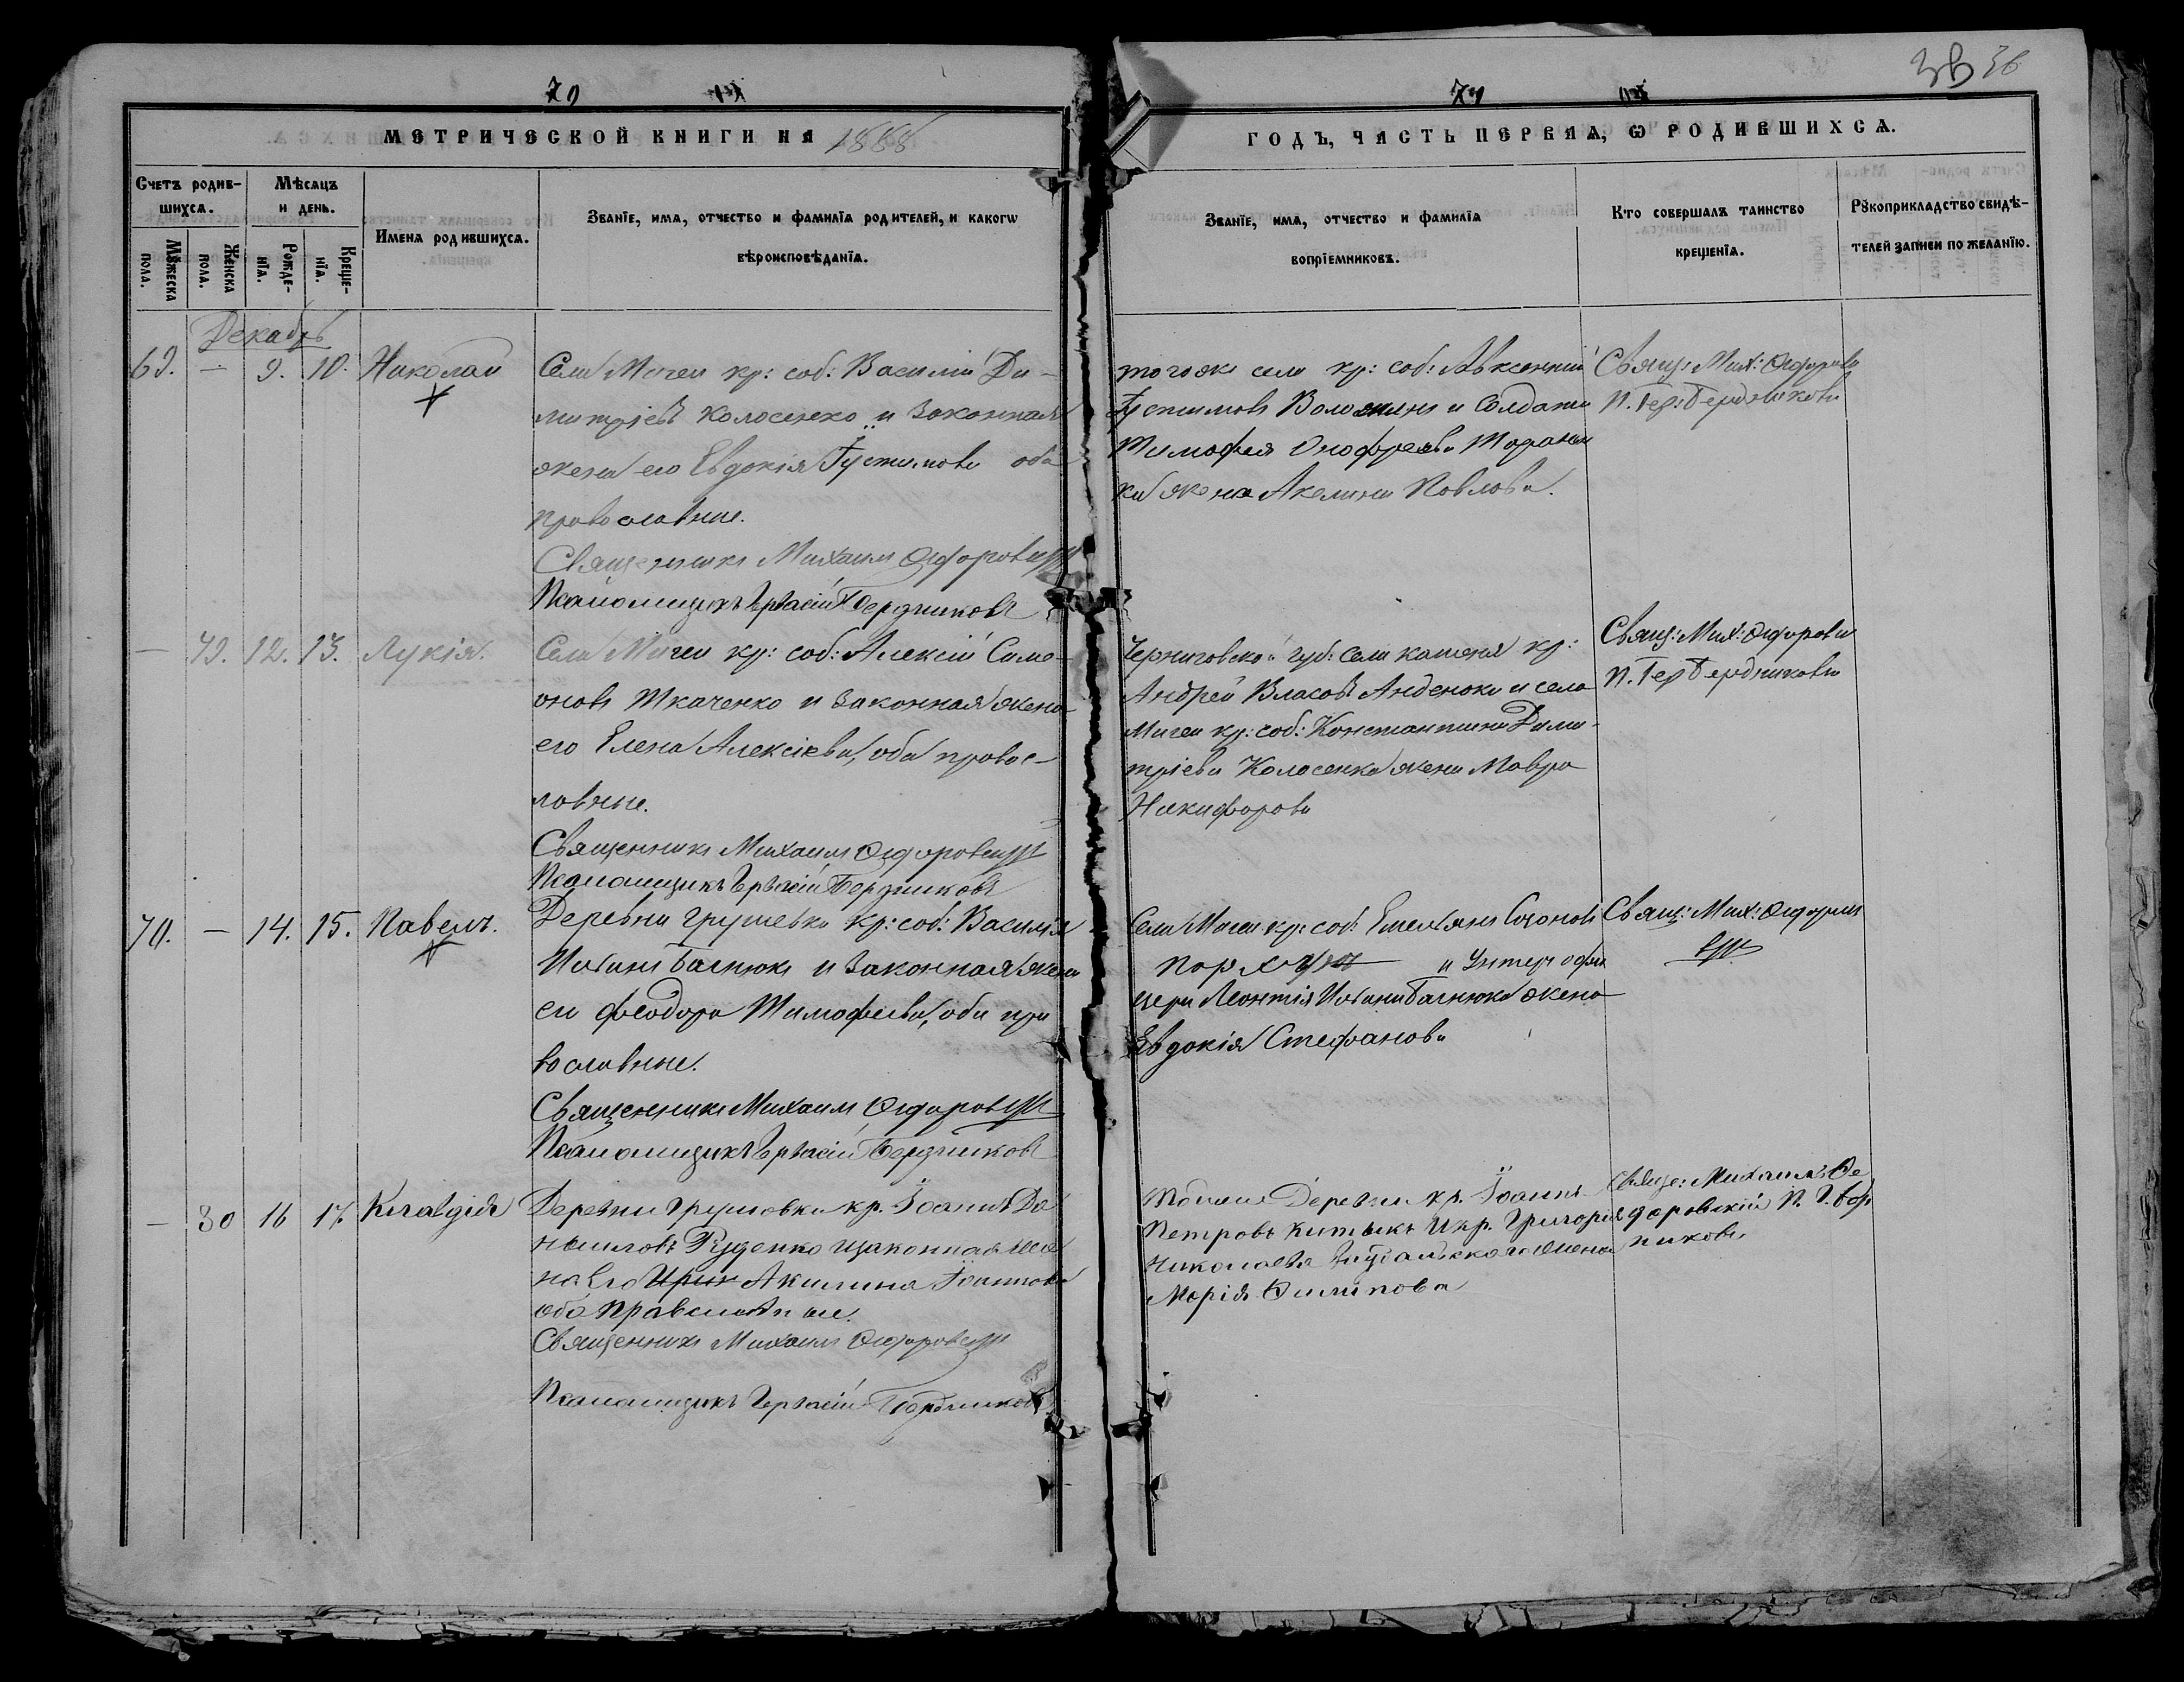 36
МЕТРИЧЕСКОЙ КНИГИ НА 1888
ГОДЪ, ЧАСТЬ ПЕРВАЯ, Ѡ РОДИВШИХСѦ.
Счетъ родив-
шихсѧ.
Мѣсѧцъ
и день.
Мꙋжеска
пола.
Женска
пола.
Рожде-
нїѧ.
Креще-
нїѧ.
Имена родившихсѧ.
Званїе, имѧ, отчество и фамилїѧ родителей, и какогѡ
вѣроисповѣданїѧ.
Званїе, имѧ, отчество и фамилїѧ
воспрїемниковъ.
Кто совершалъ таинство
крещенїѧ.
Рꙋкоприкладство свидѣ-
телей записи по желанїю.
Декабрь
69. — 9. 10. Николай
Села Мигеи кр: соб: Василій Ди-
митріевъ Колосенко и законная
жена его Евдокія Іустинова оба
православные.
Священникъ Михаилъ Ѳедоровскій
Псаломщикъ Гервасій Бердниковъ
тогоже села кр: соб: Авксентій
Іустиновъ Волошинъ и Солдата
Тимофея Онофреева
жена Акелина Павлова.
Свящ: Мих: Ѳедоровск
П. Гер: Бердниковъ
— 79. 12. 13. Лукія.
Села Мигеи кр: соб: Алексій Симе-
оновъ Ткаченко и законная жена
его Елена Алексіева, оба правос-
лавные.
Священникъ Михаилъ Ѳедоровскій
Псаломщикъ Гервасій Бердниковъ
Черниговской губ: села Каменя кр:
Андрей Власовъ и села
Мигеи кр: соб: Константина Дими-
тріева Колосенка жена Мавра
Никифорова
Свящ: Мих: Ѳедоровск
П. Гер Бердниковъ
70. — 14. 15. Павелъ.
Деревни Грушевки кр: соб: Василій
Іоанновъ Багнюкъ и законная жена
его Феодора Тимофеева, оба пра
вославные.
Священникъ Михаилъ Ѳедоровскій
Псаломщикъ Гервасій Бердниковъ
Села Мигеи кр: соб: Емельянъ
и Унтеръ офи
цера Леонтія Багнюка жена
Евдокія Стефанова
Свящ: Мих: Ѳедоров
скій
— 80 16 17.
Деревни Грушовки кр. Іоаннъ Да
ниловъ Руденко и законная же
на его Акилина Іоаннова
оба православные.
Священникъ Михаилъ Ѳедоровскій
Псаломщикъ Гервасій Бердниковъ
Тойже Деревни кр. Іоаннъ
Петровъ и кр. Григорія
Николаева жена
Марія Филипова
Свяще: Михаилъ Ѳе
доровскій П. Г. Берд
никовъ